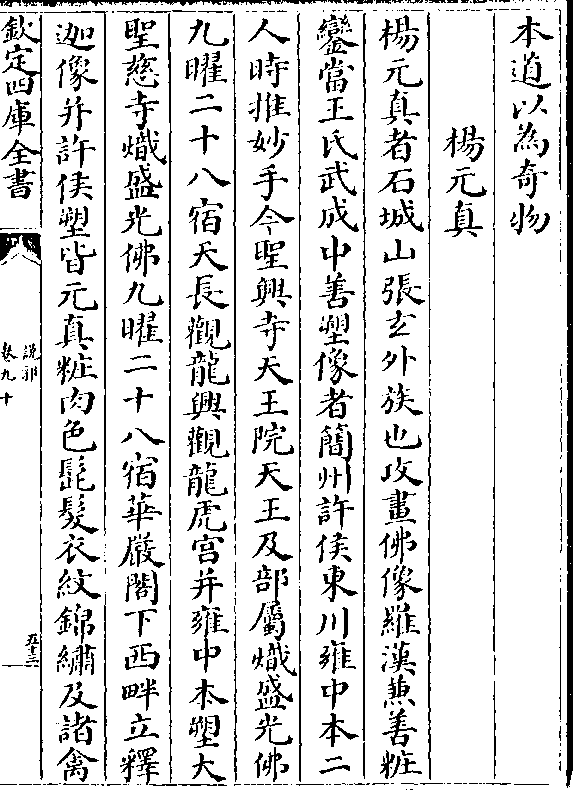 本道以為奇物
楊元真
楊元真者石城山張玄外族也攻畫佛像羅漢兼善粧
鑾當王氏武成中善塑像者簡州許侯東川雍中本二
人時推妙手今聖興寺天王院天王及部屬熾盛光佛
九曜二十八宿天長觀龍興觀龍虎宫并雍中本塑大
聖慈寺熾盛光佛九曜二十八宿華嚴閣下西畔立釋
迦像并許侯塑皆元真粧肉色髭髮衣紋錦繡及諸禽
欽定四庫全書
說郛
卷九十
五十三